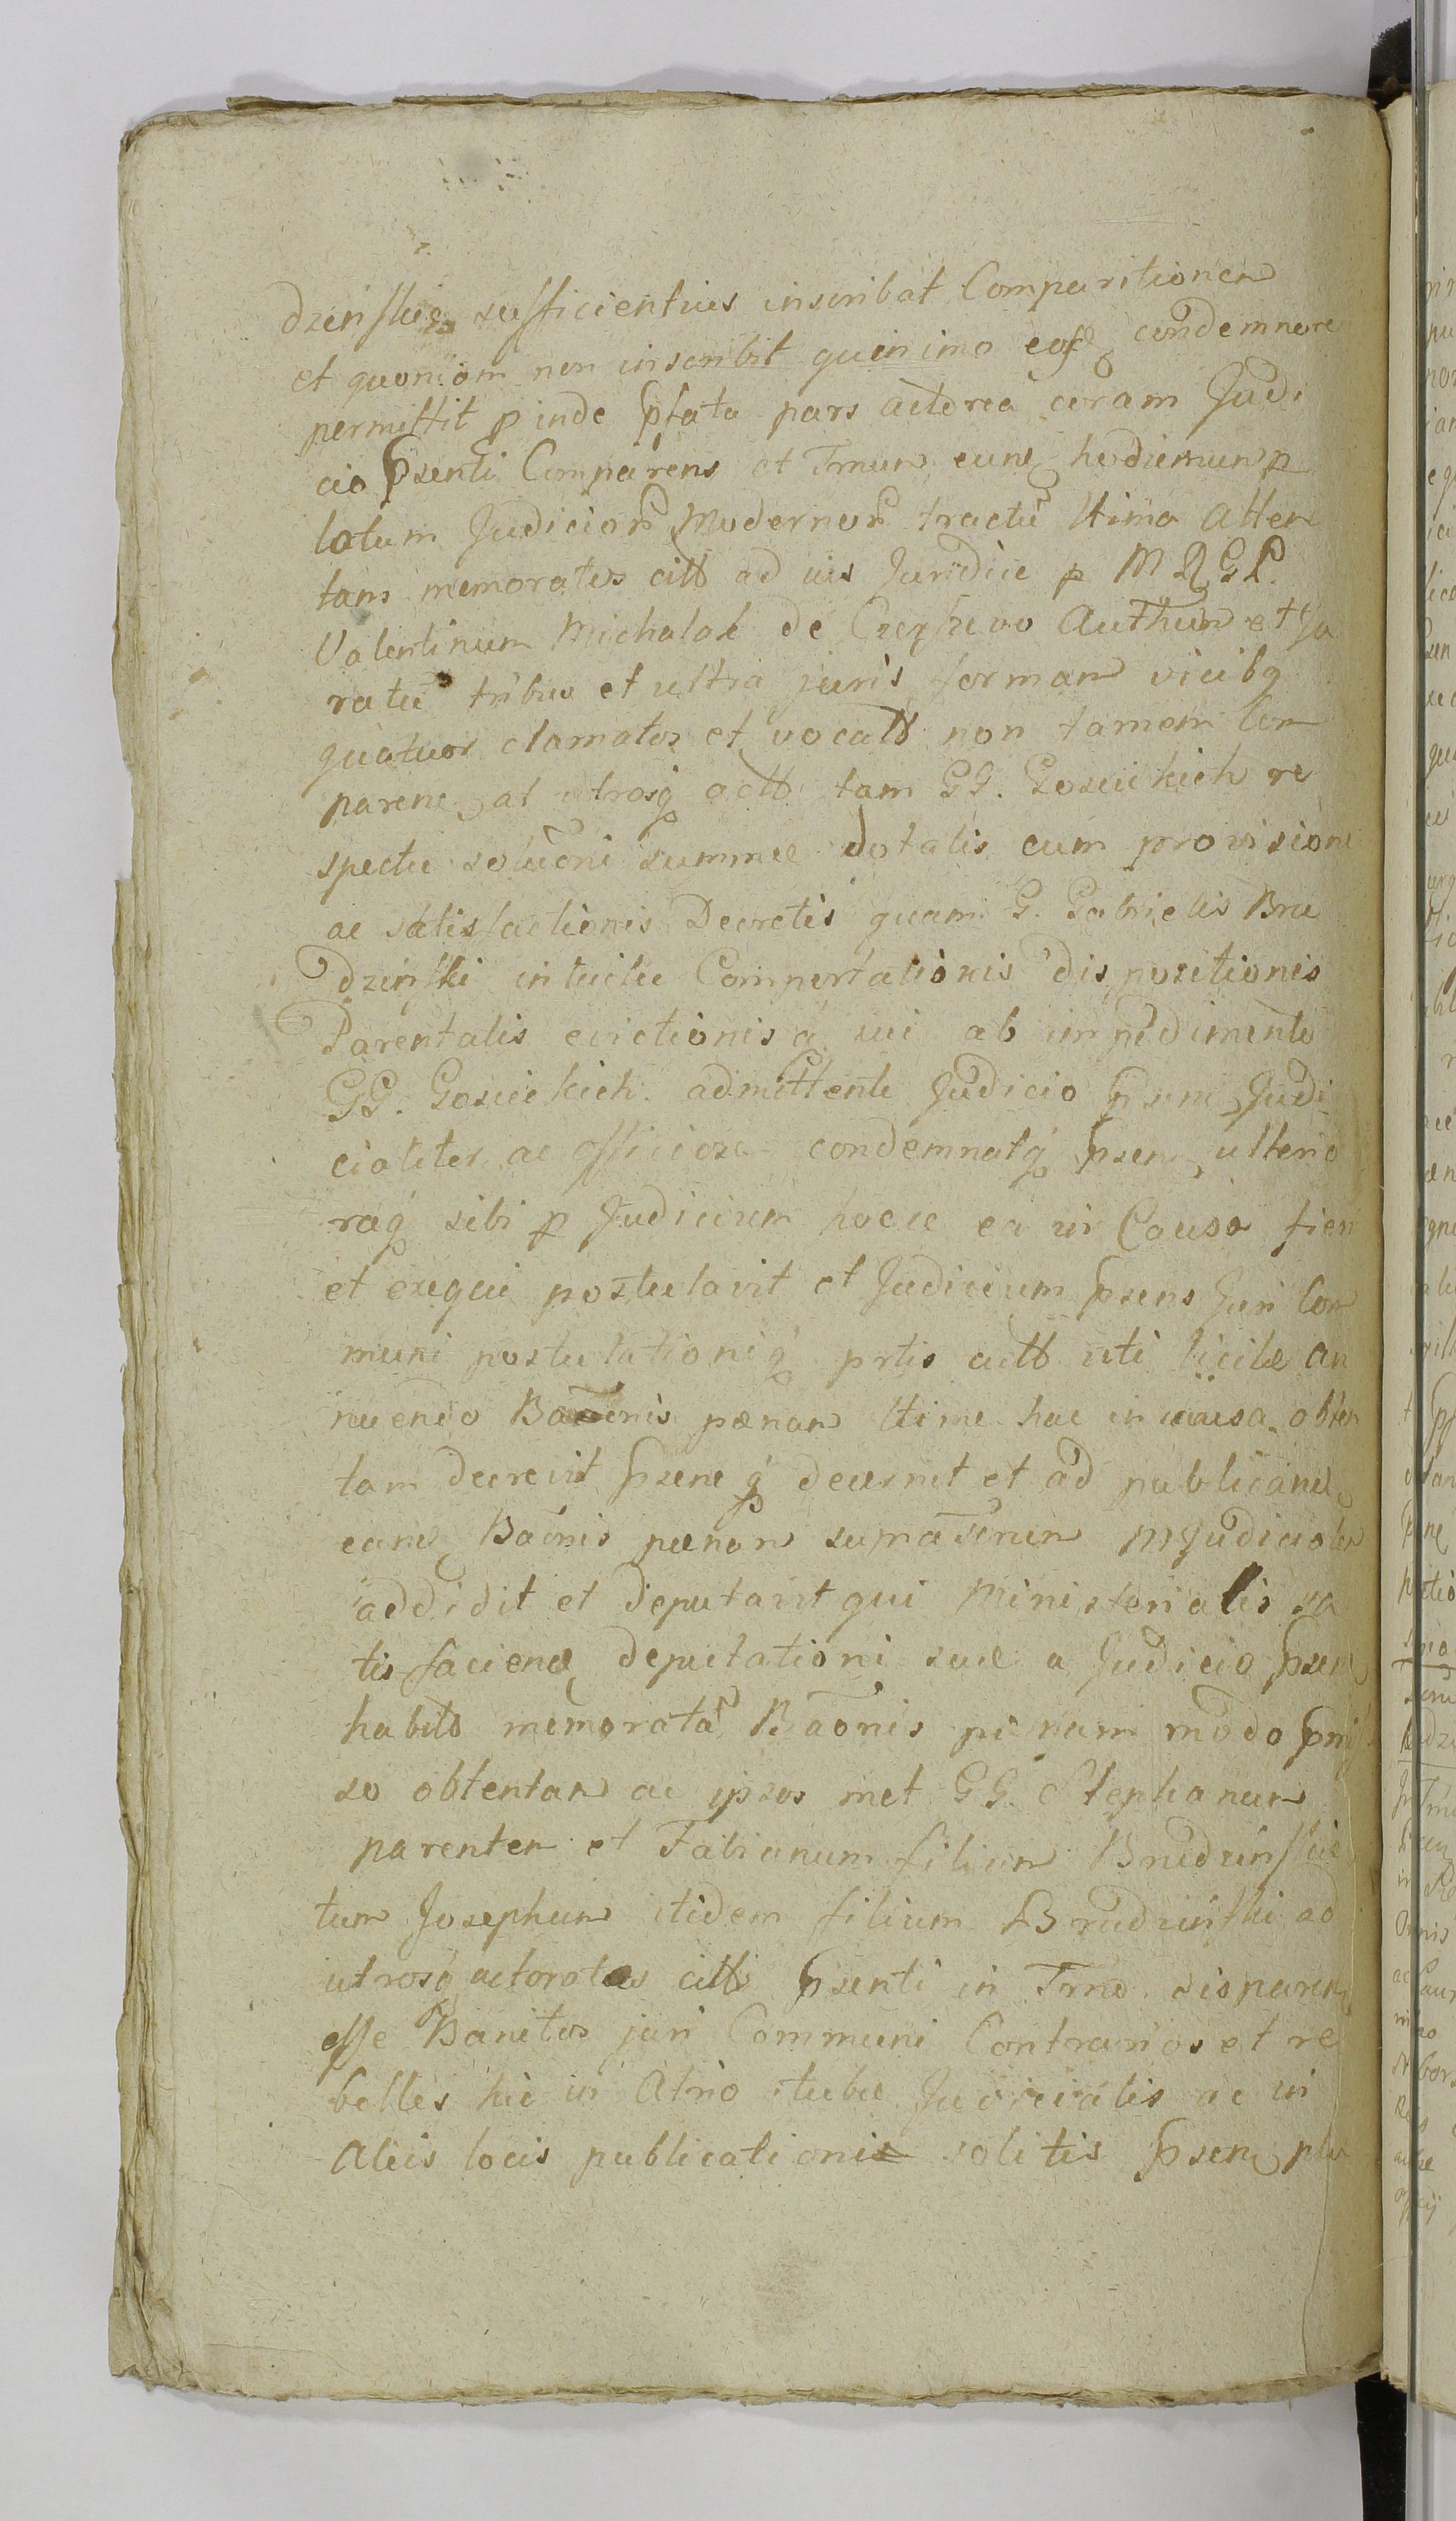 dzinskie sufficientius inscribat Comparitionem
et quoniam non inscribit quinimo eosd condemnare
permittit p inde pfata pars actorea coram Judi
cio psenti Comparens et Tmum eund hodiernum p
latum Judicior Modernor tractu ltima atten
tans memoratos citt ad vis Juridice p M R G P.
Valentinum Michalak de authen et Ju
ratu tribus et ultra juris formam vicibq
quatuor clamatos et vocatt non tamem Com
paren at utrosq actt tam GG. Gosciickich re
spectu solucni summae dotalis cum provisione
ac satisfactionis Decretis quam G. Gabrielis Bru
dzinski intuitu Comportationis dispositionis
Parentalis evictionisq sui ab impedimento
GG. Gosciickich admittente Judicio psen Judi
cialiter ac officiose condemnatq psen ulterio
raq sibi p Judicium hocce ea in Causa fieri
et exequi postulavit et Judicium psens Juri Com
muni postulationiq prtis actt uti licitae an
nuendo Banonis paenam ltime hac in causa obten
tam decrevit psenq decernit et ad publicand
eand Baonis paenam suprascrium MJudicialem
addidit et deputavit qui Ministerialis sa
tis faciend deputationi suae a Judicio psen
habito memorata Baonis paenam modo pmis
so obtentam ac ipsos met GG. Stephanum
parentem et Fabianum filium Brudzinskie
tum Josephum itidem filium Brudzinski ad
utrosq actoratus citts psenti in Trno disparen
esse Banitos juri Communi Contrarios et re
belles hic in Atrio stubae Judicialis ac in
Aliis locis publicationis solitis psen plu